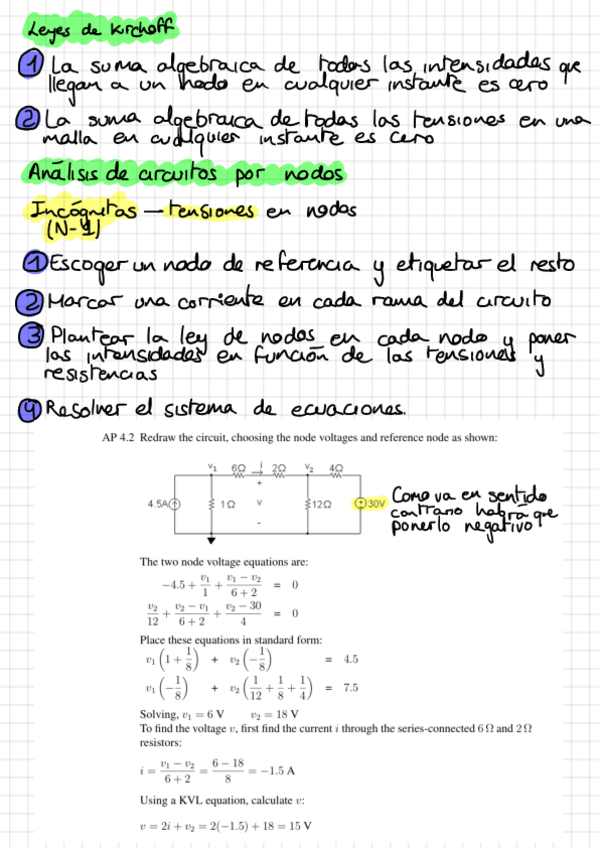 Leyes de Kirchoff
1 La suma algebraica de todas las intensidades que
llegan a un nodo en cualquier instante es cero
2 La suma algebraica de todas las tensiones en una
malla en cualquier instante es cero
Análisis de circuitos por nodos
Incógnitas — tensiones en nodos
(N-1)
1 Escoger un nodo de referencia y etiquetar el resto
2 Marcar una corriente en cada rama del circuito
3 Plantear la ley de nodos en cada nodo y poner
las intensidades en función de las tensiones y
resistencias
4 Resolver el sistema de ecuaciones.
AP 4.2 Redraw the circuit, choosing the node voltages and reference node as shown:
v1 6Ω i 2Ω v2 4Ω
4.5A 1Ω + v - 12Ω 30V
Como va en sentido
contrario habrá que
ponerlo negativo
The two node voltage equations are:
−4.5 + v₁/1 + (v₁ − v₂)/(6 + 2) = 0
v₂/12 + (v₂ − v₁)/(6 + 2) + (v₂ − 30)/4 = 0
Place these equations in standard form:
v₁(1 + 1/8) + v₂(−1/8) = 4.5
v₁(−1/8) + v₂(1/12 + 1/8 + 1/4) = 7.5
Solving, v₁ = 6 V v₂ = 18 V
To find the voltage v, first find the current i through the series-connected 6 Ω and 2 Ω
resistors:
i = (v₁ − v₂)/(6 + 2) = (6 − 18)/8 = −1.5 A
Using a KVL equation, calculate v:
v = 2i + v₂ = 2(−1.5) + 18 = 15 V